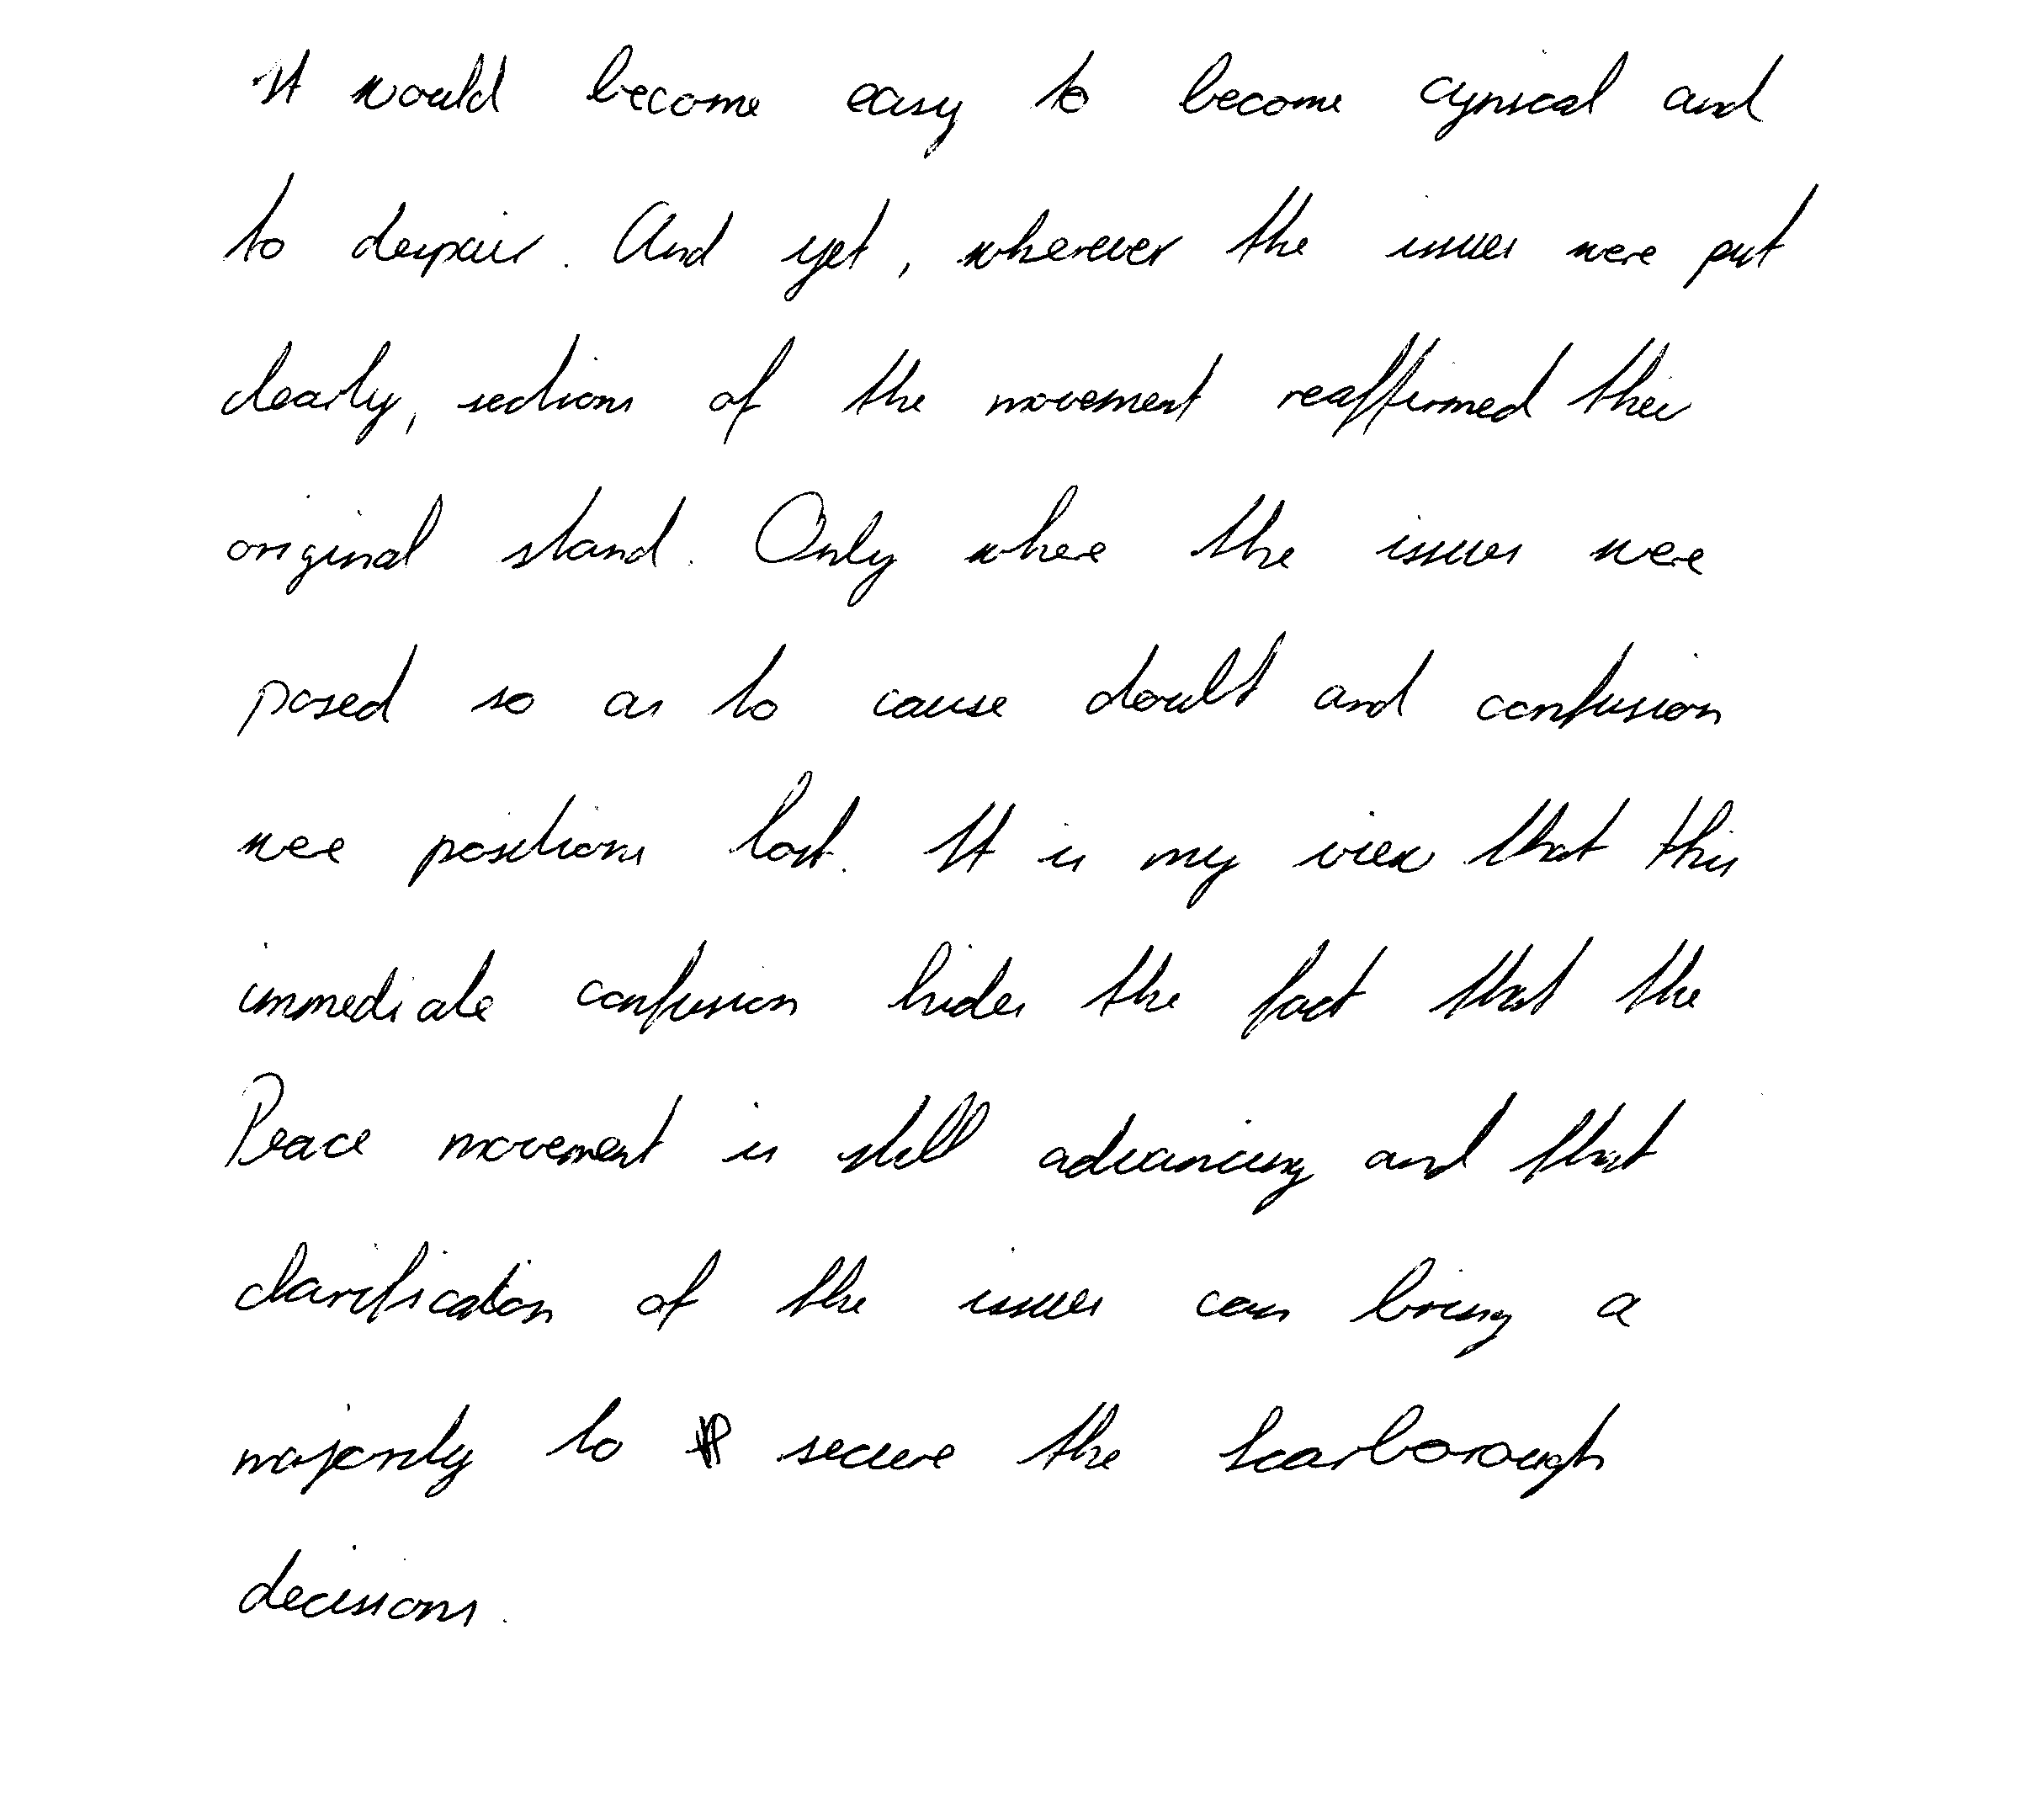 It would become easy to become cynical and
to despair. And yet, wherever the issues were put
clearly, sections of the movement reaffirmed their
original stand. Only where the issues were
posed so as to cause doubt and confusion
were positions lost. It is my view that this
immediate confusion hides the fact that the
Peace movement is still advancing and that
clarification of the issues can bring a
majority to secure the Scarborough
decisions.